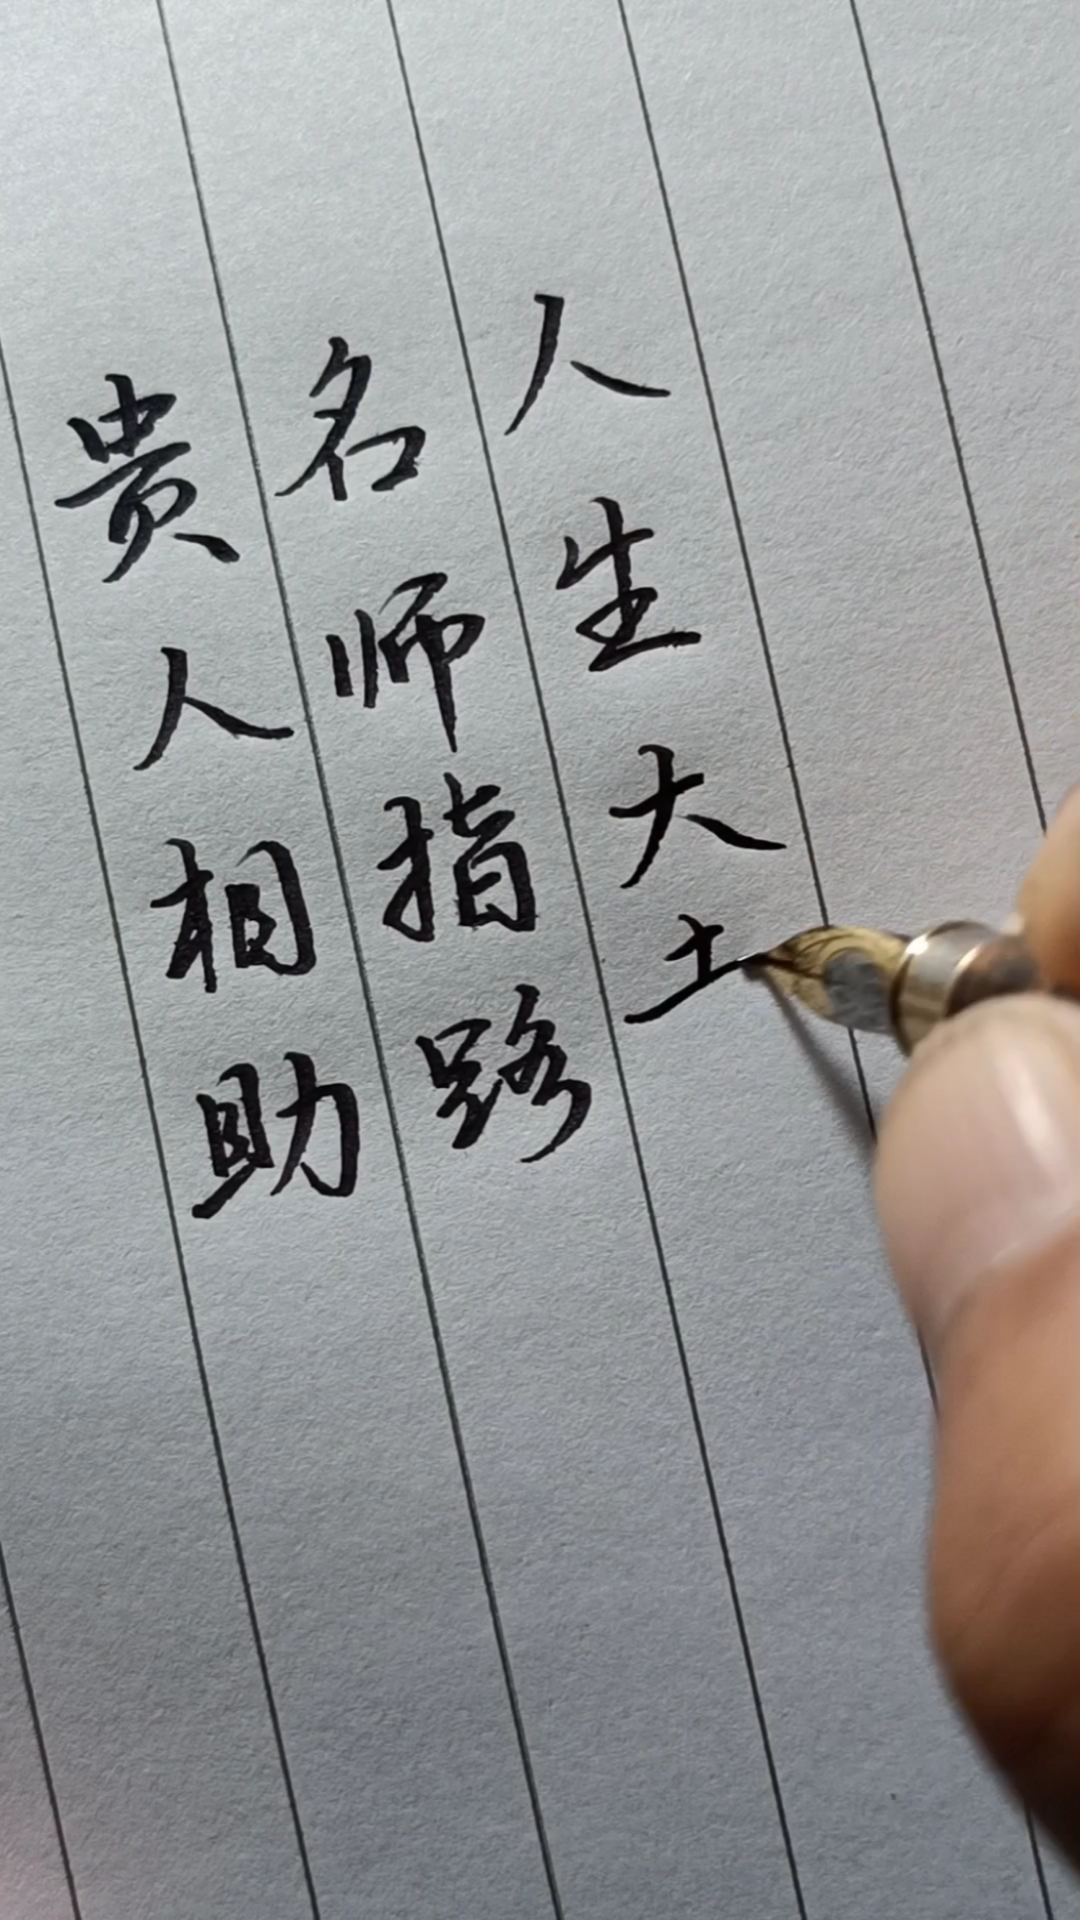 贵人相助
名师指路
人生大